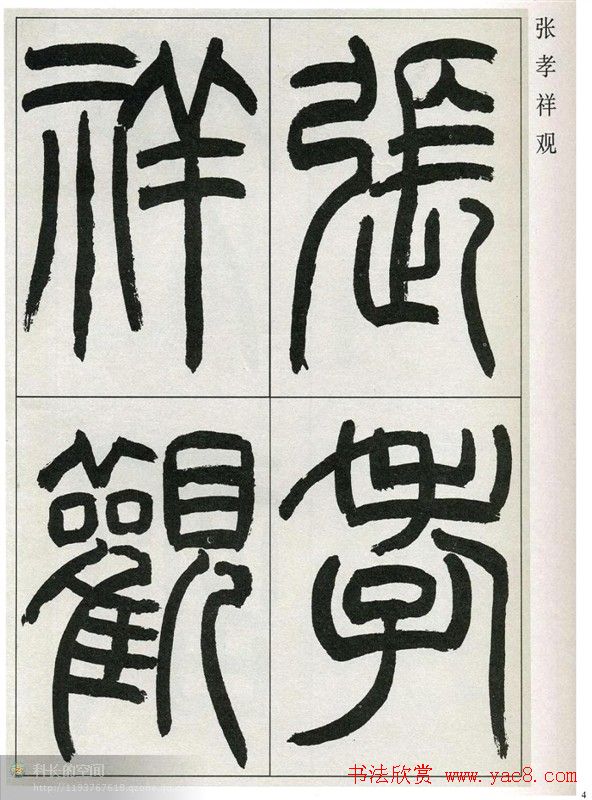 張孝
祥觀
张孝祥观
科长的空间
http://1193767618.qzone.qq.com
书法欣赏 www.yac8.com
4